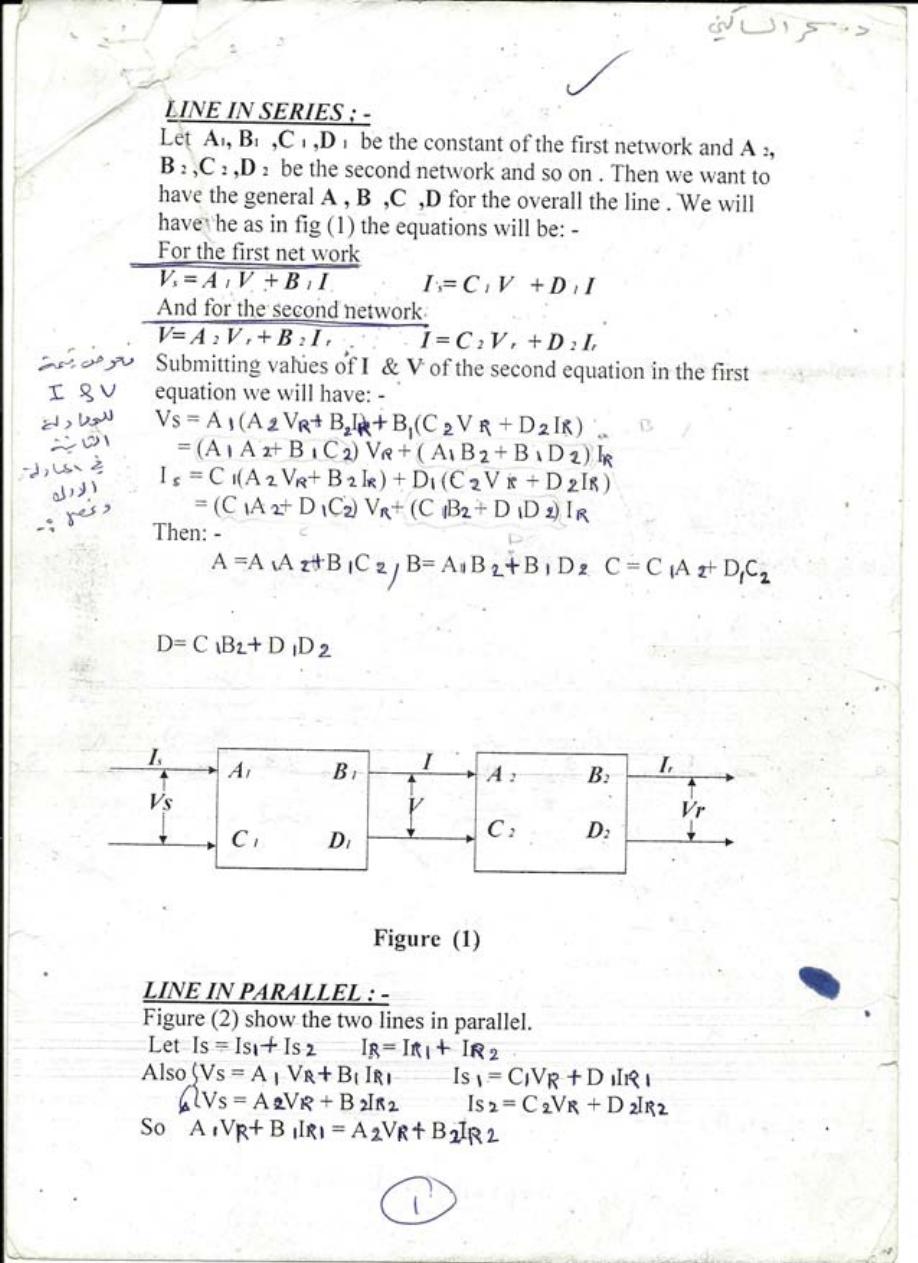 د. سحر الساكني
LINE IN SERIES : -
Let A₁, B₁ ,C ₁ ,D ₁ be the constant of the first network and A ₂,
B ₂ ,C ₂ ,D ₂ be the second network and so on . Then we want to
have the general A , B ,C ,D for the overall the line . We will
have he as in fig (1) the equations will be: -
For the first net work
Vₛ = A ₁ V + B ₁ I        I ₛ= C ₁ V + D ₁ I
And for the second network
V= A ₂ V ᵣ + B ₂ I ᵣ        I = C ₂ V ᵣ + D ₂ Iᵣ
Submitting values of I & V of the second equation in the first
equation we will have: -
I & V
للمعادلة
الثانية
في المعادلة
Vs = A ₁(A ₂ VR+ B₂IR+ B₁(C ₂ V R + D₂ IR)
= (A₁ A ₂+ B ₁ C₂) VR + ( A₁ B₂ + B ₁ D₂) IR
I s = C ₁(A ₂ VR+ B₂ IR) + D₁ (C₂V R + D₂IR)
= (C ₁A ₂+ D ₁C₂) VR+ (C ₁B₂ + D ₁D ₂) I R
Then: -
A =A ₁A ₂+B ₁C ₂ , B= A₁B ₂ +B ₁ D₂ C = C ₁A ₂+ D₁C₂
D= C ₁B₂+ D ₁D ₂
Iₛ A₁ B₁ I A ₂ B₂ Iᵣ
Vs V Vr
C ₁ D₁ C ₂ D₂
Figure (1)
LINE IN PARALLEL : -
Figure (2) show the two lines in parallel.
Let Is = Is₁+ Is ₂        IR= IR₁ + IR ₂
Also {Vs = A ₁ VR+ B₁ IR₁        Is ₁ = C₁VR + D ₁IR₁
Vs = A₂VR + B ₂IR₂        Is ₂ = C ₂VR + D ₂IR₂
So A ₁VR+ B ₁IR₁ = A₂VR+ B₂IR ₂
1